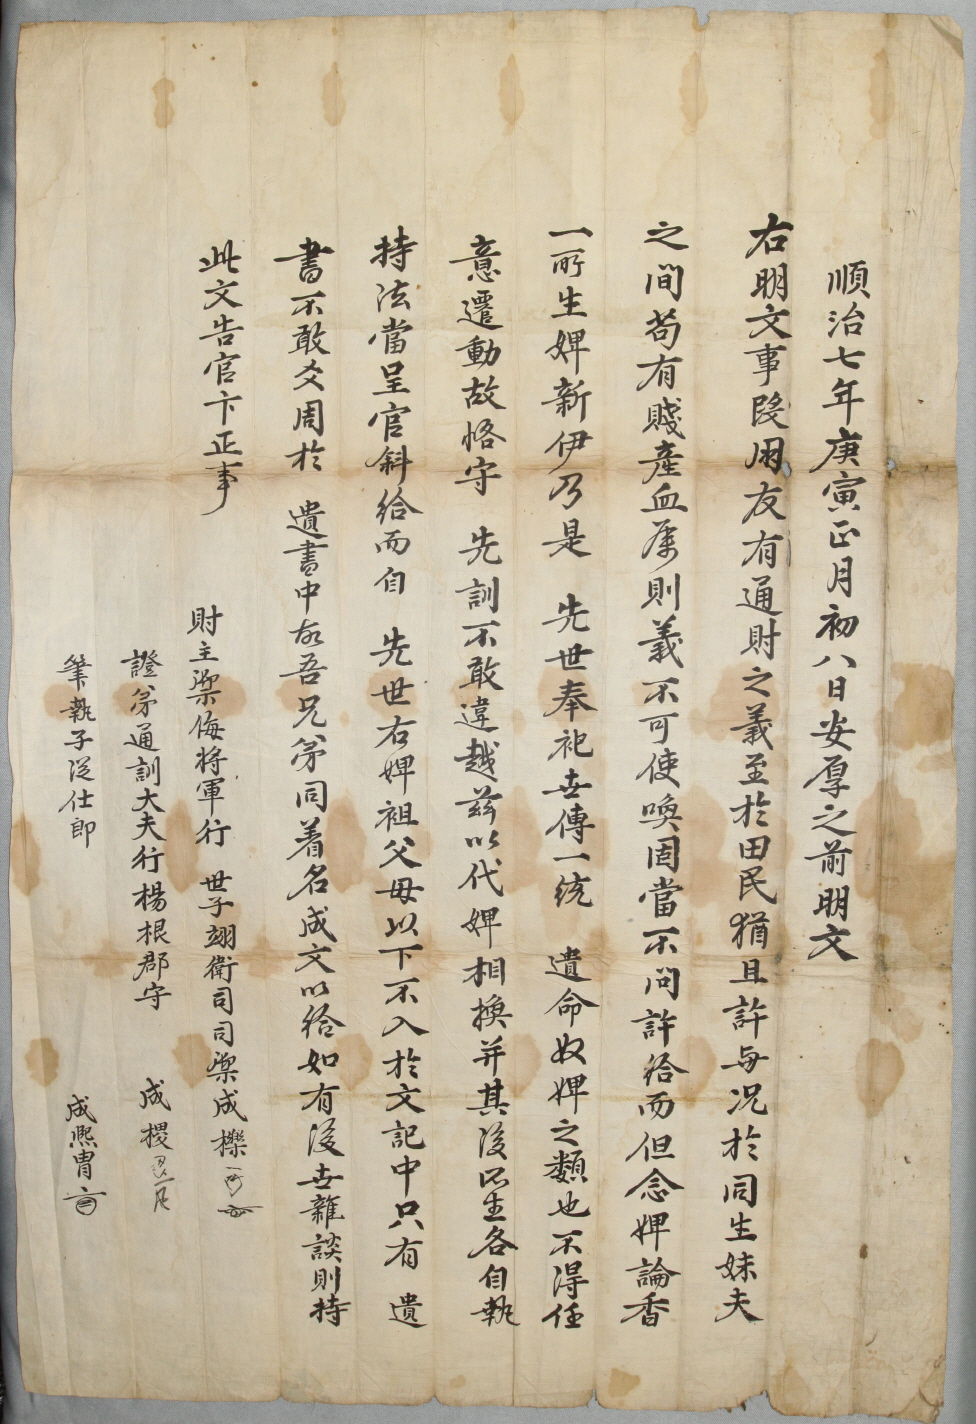 順治七年庚寅正月初八日安厚之前明文
右明文事段朋友有通財之義至於田民猶且許與况於同生妹夫
之間苟有賤產血屬則義不可使喚固當不問許給而但念婢論香
一所生婢新伊乃是 先世奉祀世傳一統 遺命奴婢之類也不得任
意遷動故恪守 先訓不敢違越玆以代婢相換并其後所生各自執
持法當呈官斜給而自 先世右婢祖父母以下不入於文記中只有 遺
書不敢爻周於 遺書中故吾兄弟同着名成文以給如有後世雜談則持
此文告官卞正事
財主禦侮將軍行 世子翊衛司司禦成櫟
證弟通訓大夫行楊根郡守 成㮨
筆執子從仕郎 成熙冑